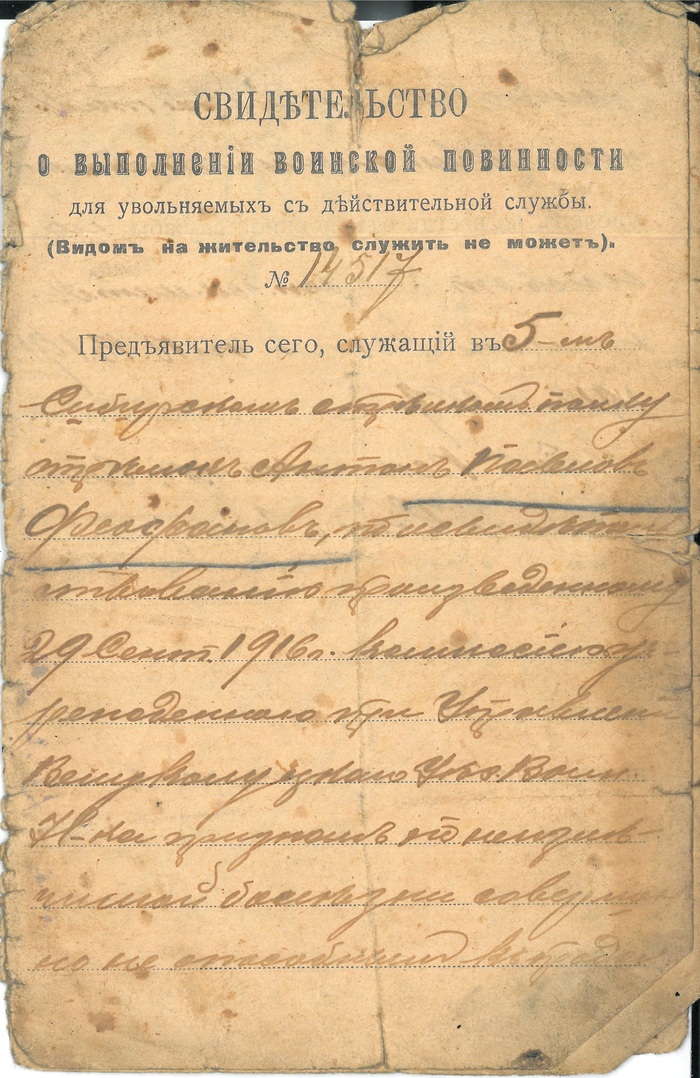 СВИДѢТЕЛЬСТВО
О ВЫПОЛНЕНІИ ВОИНСКОЙ ПОВИННОСТИ
для увольняемыхъ съ дѣйствительной службы.
(Видомъ на жительство служить не можетъ).
№ 14517
Предъявитель сего, служащій въ 5-мъ
Сибирскомъ стрѣлков. полку
стрѣлокъ Антонъ Павловъ
Феофановъ, по освидѣтель-
ствованію произведенному
29 Сент. 1916 г. комиссіею уч-
режденною при Управленіи
Великолуцкаго Уѣз. Воин.
Н-ка признанъ по неизле-
чимой болѣзни совершен
но не способнымъ къ